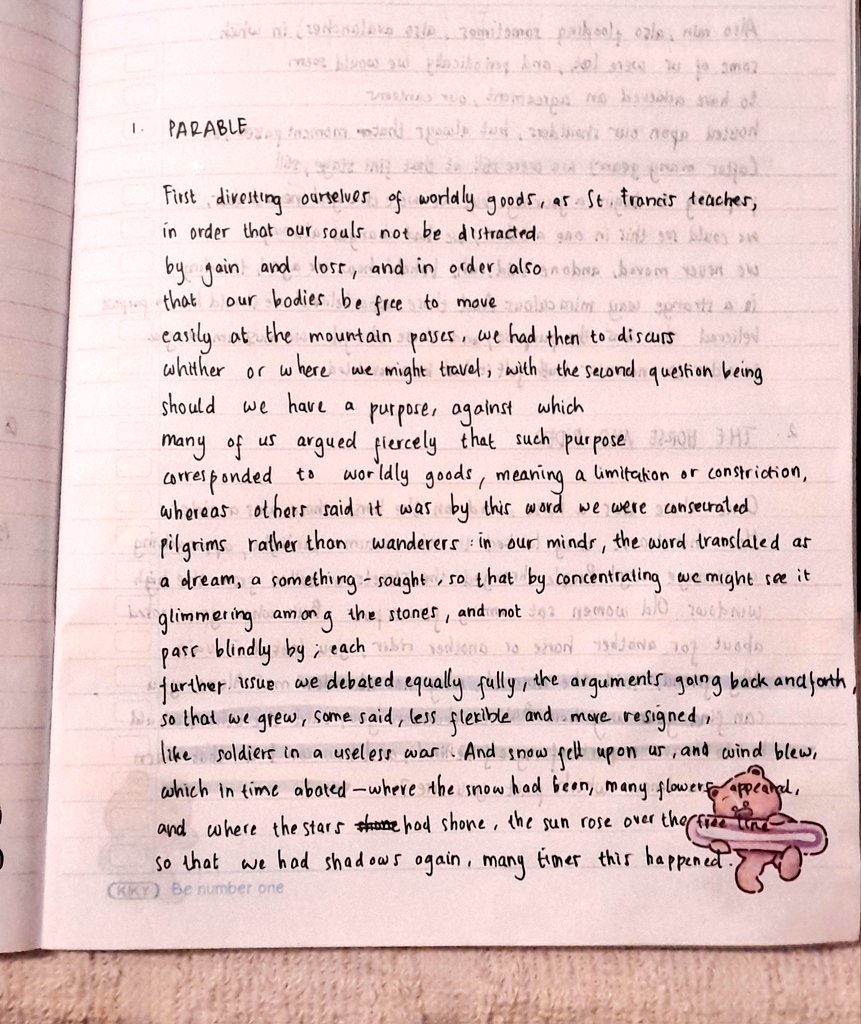 1. PARABLE
First divesting ourselves of worldly goods, as St. Francis teaches,
in order that our souls not be distracted
by gain and loss, and in order also
that our bodies be free to move
easily at the mountain passes, we had then to discuss
whither or where we might travel, with the second question being
should we have a purpose, against which
many of us argued fiercely that such purpose
corresponded to worldly goods, meaning a limitation or constriction,
whereas others said it was by this word we were consecrated
pilgrims rather than wanderers: in our minds, the word translated as
a dream, a something-sought, so that by concentrating we might see it
glimmering among the stones, and not
pass blindly by; each
further issue we debated equally fully, the arguments going back and forth,
so that we grew, some said, less flexible and more resigned,
like soldiers in a useless war. And snow fell upon us, and wind blew,
which in time abated—where the snow had been, many flowers appeared,
and where the stars shone had shone, the sun rose over the tree line
so that we had shadows again, many times this happened.
KKY Be number one